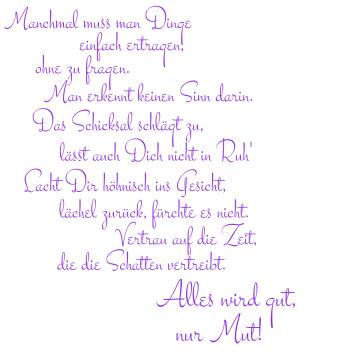 Manchmal muss man Dinge
einfach ertragen,
ohne zu fragen.
Man erkennt keinen Sinn darin.
Das Schicksal schlägt zu,
lässt auch Dich nicht in Ruh'
Lacht Dir höhnisch ins Gesicht,
lächel zurück, fürchte es nicht.
Vertrau auf die Zeit,
die die Schatten vertreibt.
Alles wird gut,
nur Mut!